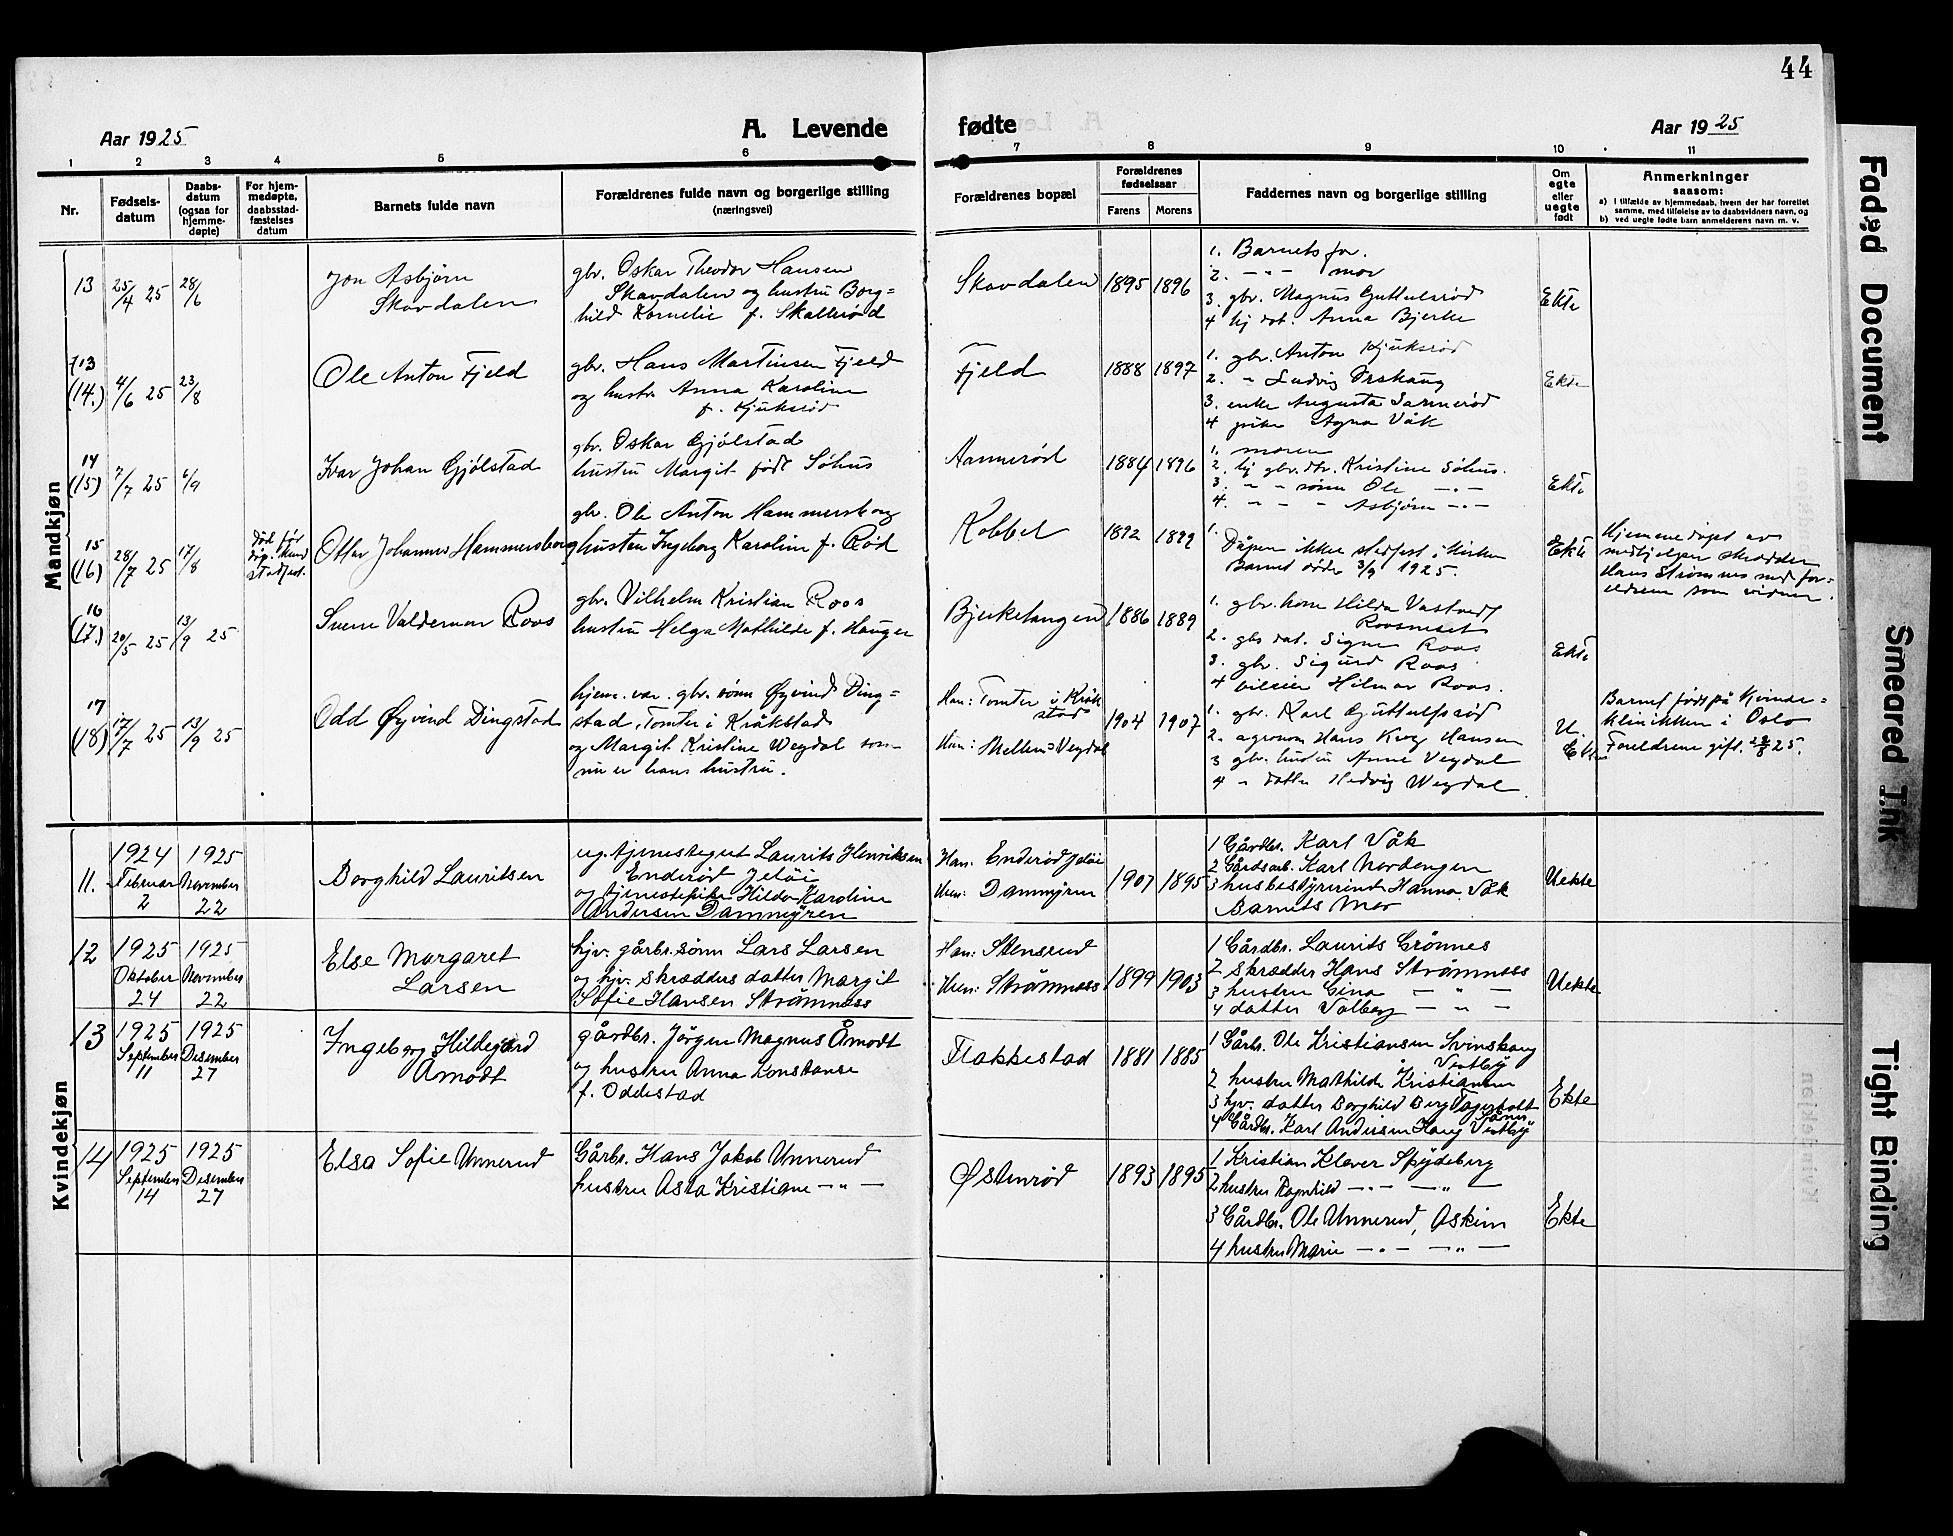 44
Aar 1925
A. Levende fødte
Aar 1925
1 2 3 4 5 6 7 8 9 10 11
Nr.
Fødsels-
datum
Daabs-
datum
(ogsaa for
hjemme-
døpte)
For hjem-
medøpte,
daabsstad-
fæstelses
datum
Barnets fulde navn
Forældrenes fulde navn og borgerlige stilling
(næringsvei)
Forældrenes bopæl
Forældrenes
fødselsaar
Farens Morens
Faddernes navn og borgerlige stilling
Om
egte
eller
uegte
født
Anmerkninger
saasom:
a) i tilfælde av hjemmedaab, hvem der har forrettet
samme, med tilføielse av to daabsvidners navn, og
b) ved uegte fødte barn anmelderens navn m. v.
Mandkjøn
13
25/4 25
28/6
Jon Asbjørn
Skovdalen
gbr. Oskar Theodor Hansen
Skavdalen og hustru Borg=
hild Kornelie f. Skallerød
Skovdalen
1895 1896
1. Barnets far.
2. - " - mor
3. gbr. Magnus Guttulsrød
4 hj dat. Anna Bjerke
Ekte
13
(14.)
4/6 25
23/8
Ole Anton Fjeld
gbr. Hans Martinsen Fjeld
og hustr. Anna Karoline
f. Kjuksrød
Fjeld
1888 1897
1. gbr. Anton Kjuksrød
2. " Ludvig Ørskaug
3. enke Augusta Sarmerød
4 pike Agna Våk
Ekte
14
(15)
7/7 25
6/9
Ivar Johan Gjølstad
gbr. Oskar Gjølstad
hustru Margit født Søhus
Aannerød
1884 1896
1. moren
2. hj gbr. dtr. Kristine Søhus.
3. " - sønn Ole - " -
4. - - - Asbjørn - " -
Ekte
15
(16)
28/7 25
17/8
Død før
stadfest.
Ottar Johannes Hammersborg
gbr. Ole Anton Hammersborg
hustru Ingeborg Karoline f. Rød
Kobbel
1892 1899
1.
Dåpen ikke stadfest i kirken
Barnet døde 3/9 1925.
Ekte
Hjemmedøpt av
medhjelper skredder
Hans Strømnes med for=
eldrene som vidner.
16
(17.)
20/5 25
13/9 25
Sverre Valdemar Roos
gbr. Vilhelm Kristian Roos
hustru Helga Mathilde f. Hauger
Bjerketangen
1886 1889
1. gbr. kone Hilda
Roosneset
2. gbs dat. Signe Roos
3. gbr. Sigurd Roos
4 bileier Hilmar Roos.
Ekte
17
(18)
17/7 25
13/9 25
Odd Øyvind Dingstad
hjem. vær. gbr. sønn Øyvind Ding=
stad, Tomter i Kråkstad
og Margit Kristine Wegdal som
nu er hans hustru.
Han: Tomter i Kråk
stad
Hun: Mellem=Vegdal
1904 1907
1. gbr. Karl Guttulfsrød
2. agronom Hans Kvog Hansen
3 gbr. hustru Anne Vegdal
4 " datter Hedvig Wegdal.
U.
Ekte
Barnet født på Kvinde=
klinikken i Oslo
Foreldrene gift. 29/8 25.
Kvindekjøn
11.
1924
Februar
2
1925
November
22
Borghild Lauritsen
ug. tjenestegut Laurits Henriksen
Enderød Jeløi
og tjenestepike Hilda Karoline
Andersen Dammyren
Han. Enderød Jeløi
Hun: Dammyren
1907 1895
1 Gårdbr. Karl Våk
2 Gårdsarb. Karl Nordengen
3 husbestyrerinde Hanna Våk
Barnets Mor
Uekte
12
1925
Oktober
24
1925
November
22
Else Margaret
Larsen
hjv. gårbr. sønn Lars Larsen
og hjv. skredders datter Margit
Sofie Hansen Strømness
Han: Stensrud
Hun: Strømness
1899 1903
1 Gårdbr. Laurits Grønnes
2 Skredder Hans Strømness
3 hustru Gina — " —
4 datter Valborg — " —
Uekte
13
1925
September
11
1925
Desember
27
Ingeborg Hildegard
Åmodt
gårdbr. Jörgen Magnus Åmodt
og hustru Anna Konstanse
f. Oddestad
Flakkestad
1881 1885
1 Gårbr. Ole Kristiansen Svinskaug
Vestby
2 hustru Mathilde Kristiansen
3 hjv. datter Borghild Berg Fagertoft
Såner
4 Gårdbr. Karl Andersen Haug Vestby
Ekte
14
1925
September
14
1925
Desember
27
Elsa Sofie Unnerud
Gårbr. Hans Jakob Unnerud
hustru Asta Kristiane — " —
Østenrød
1893 1895
1 Kristian Klever Spydeberg
2 hustru Ragnhild — " — — " —
3 Gårdbr. Ole Unnerud, Askim
4 hustru Marie — " — — " —
Ekte
Faded Document
Smeared Ink
Tight Binding